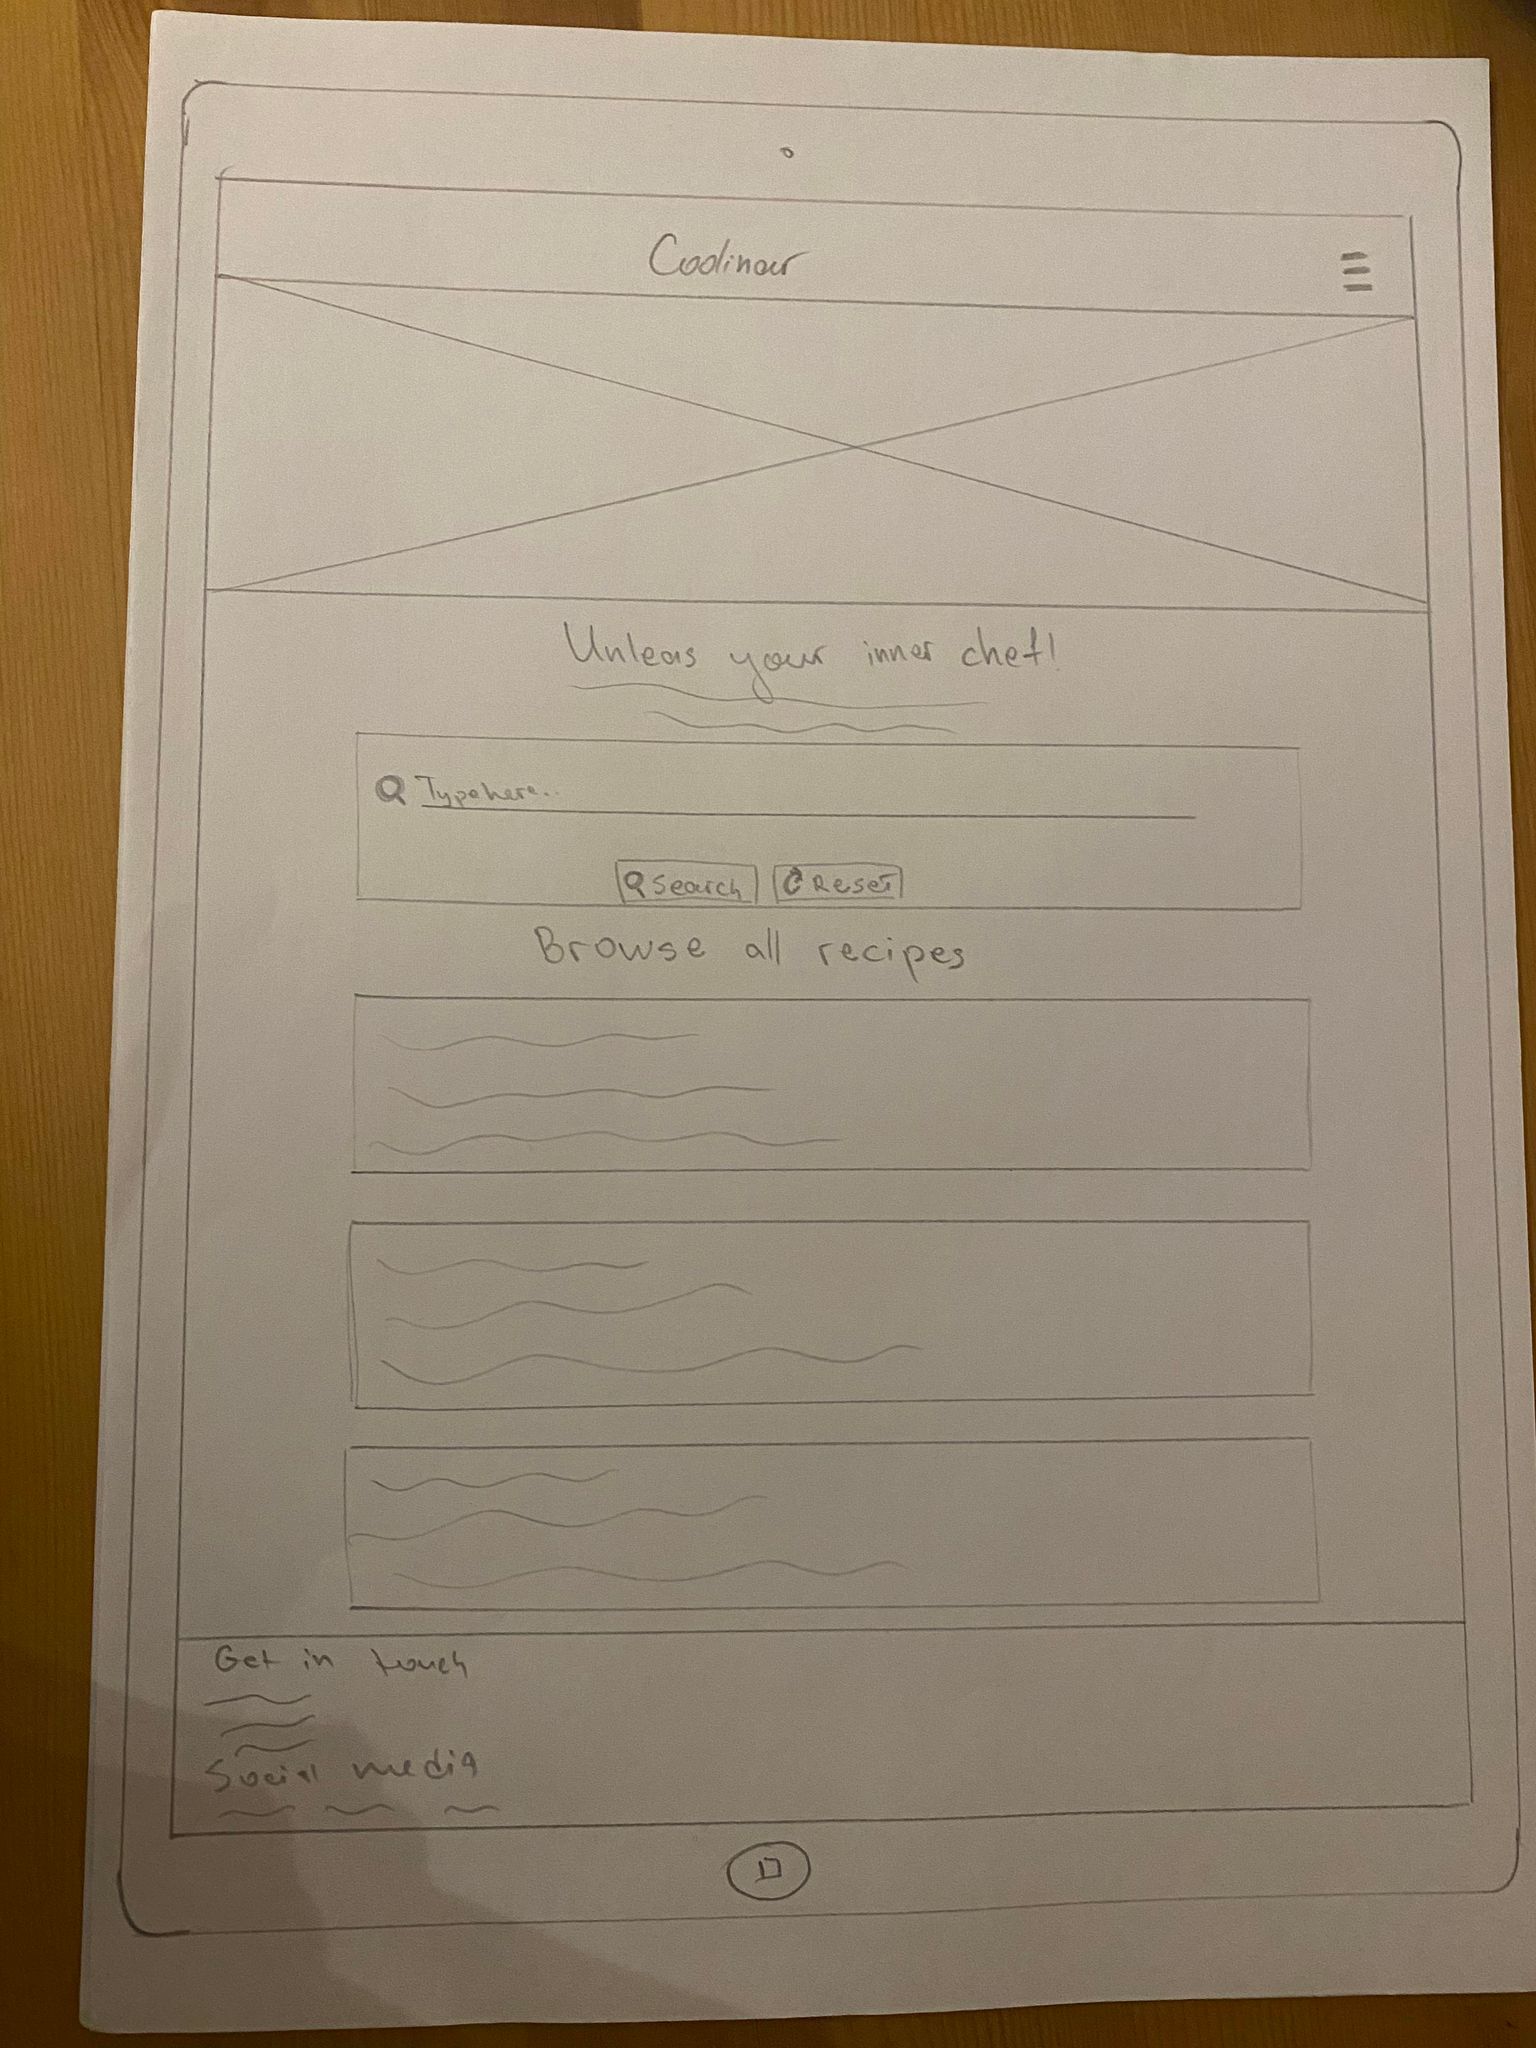 Coolinar
Unleas your inner chef!
Type here..
Search Reset
Browse all recipes
Get in touch
Social media